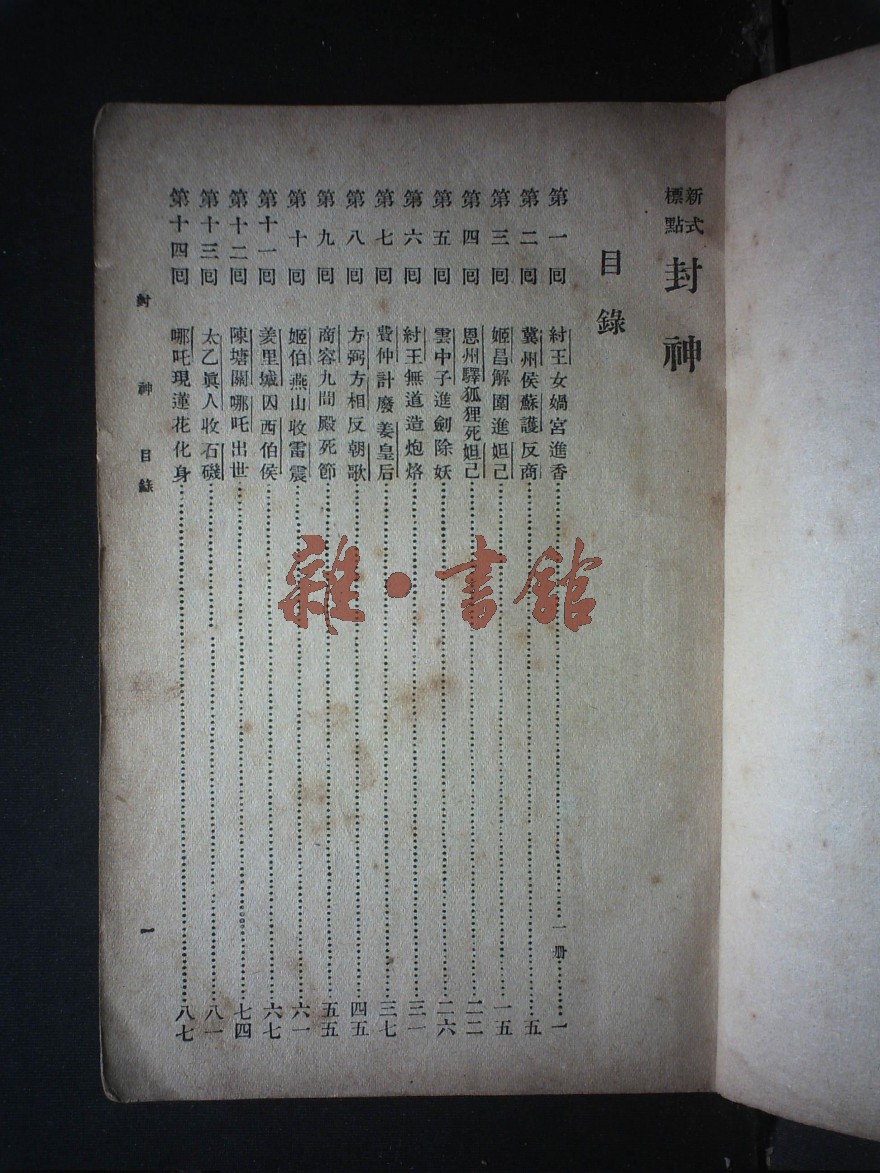 新式標點 封神
目錄
第一回 紂王女媧宮進香 一册 一
第二回 冀州侯蘇護反商 五
第三回 姬昌解圍進妲己 一五
第四回 恩州驛狐狸死妲己 二二
第五回 雲中子進劍除妖 二六
第六回 紂王無道造炮烙 三一
第七回 費仲計廢姜皇后 三七
第八回 方弼方相反朝歌 四五
第九回 商容九間殿死節 五五
第十回 姬伯燕山收雷震 六一
第十一回 羑里城囚西伯侯 六七
第十二回 陳塘關哪吒出世 七四
第十三回 太乙眞人收石磯 八一
第十四回 哪吒現蓮花化身 八七
封神 目錄 一
雜·書館